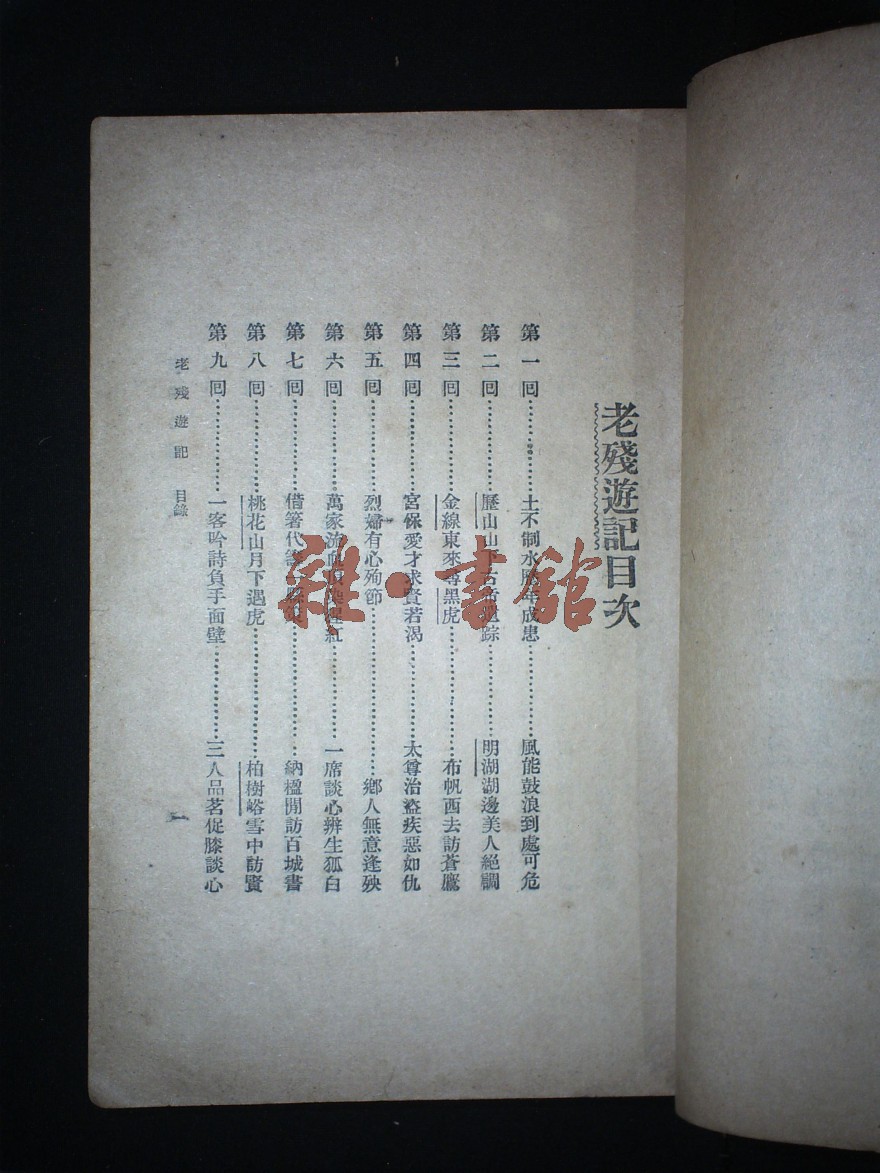 老殘遊記目次
第一囘……土不制水歷年成患……風能鼓浪到處可危
第二囘……歷山山下古帝遺踪……明湖湖邊美人絕調
第三囘……金線東來尋黑虎……布帆西去訪蒼鷹
第四囘……宮保愛才求賢若渴……太尊治盜疾惡如仇
第五囘……烈婦有心殉節……鄉人無意逢殃
第六囘……萬家流血頂染猩紅……一席談心辨生狐白
第七囘……借箸代籌縣……納楹閒訪百城書
第八囘……桃花山月下遇虎……柏樹峪雪中訪賢
第九囘……一客吟詩負手面壁……三人品茗促膝談心
老殘遊記 目錄
一
雜·書館